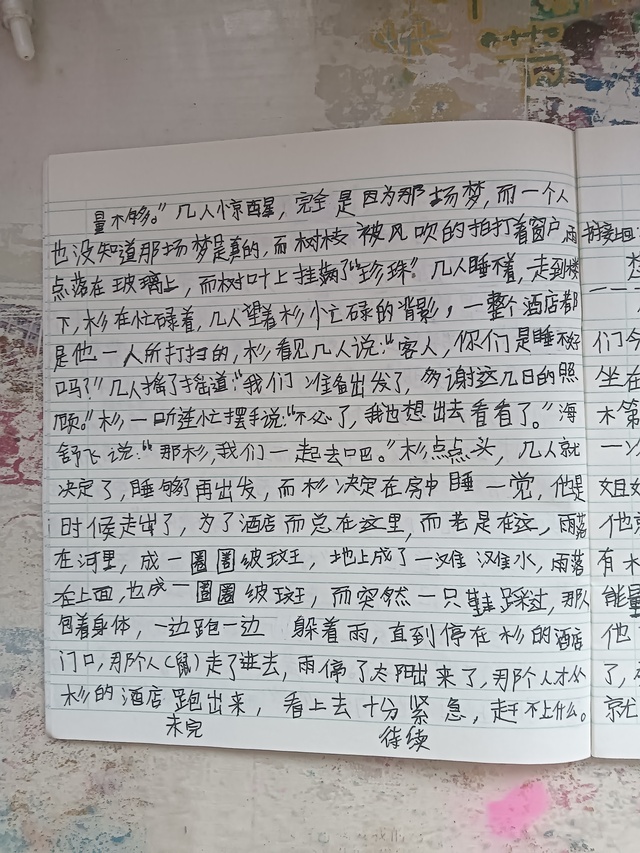 量不够。”几人惊醒,完全是因为那场梦,而一个人
也没知道那场梦是真的,而树枝被风吹的拍打着窗户,雨
点落在玻璃上,而树叶上挂满了“珍珠”。几人睡不着,走到楼
下,杉在忙碌着,几人望着杉忙碌的背影,一整个酒店都
是他一人所打扫的,杉看见几人说:“客人,你们是睡不好
吗?”几人摇了摇道:“我们准备出发了,多谢这几日的照
顾。”杉一听连忙摆手说:“不必了,我也想出去看看了。”海
舒飞说:“那杉,我们一起去吧。”杉点点头,几人就
决定了,睡够再出发,而杉决定在房中睡一觉,他是
时候走出了,为了酒店而总在这里,而老是在这,雨落
在河里,成一圈圈波斑,地上成了一滩滩水,雨落
在上面,也成一圈圈波斑,而突然一只鞋踩过,那人
包着身体,一边跑一边躲着雨,直到停在杉的酒店
门口,那个人(鼠)走了进去,雨停了太阳出来了,那个人才从
杉的酒店跑出来,看上去十分紧急,赶不上什么。
未完 待续
们今
坐在
木第
有木
能量
他
了,
就